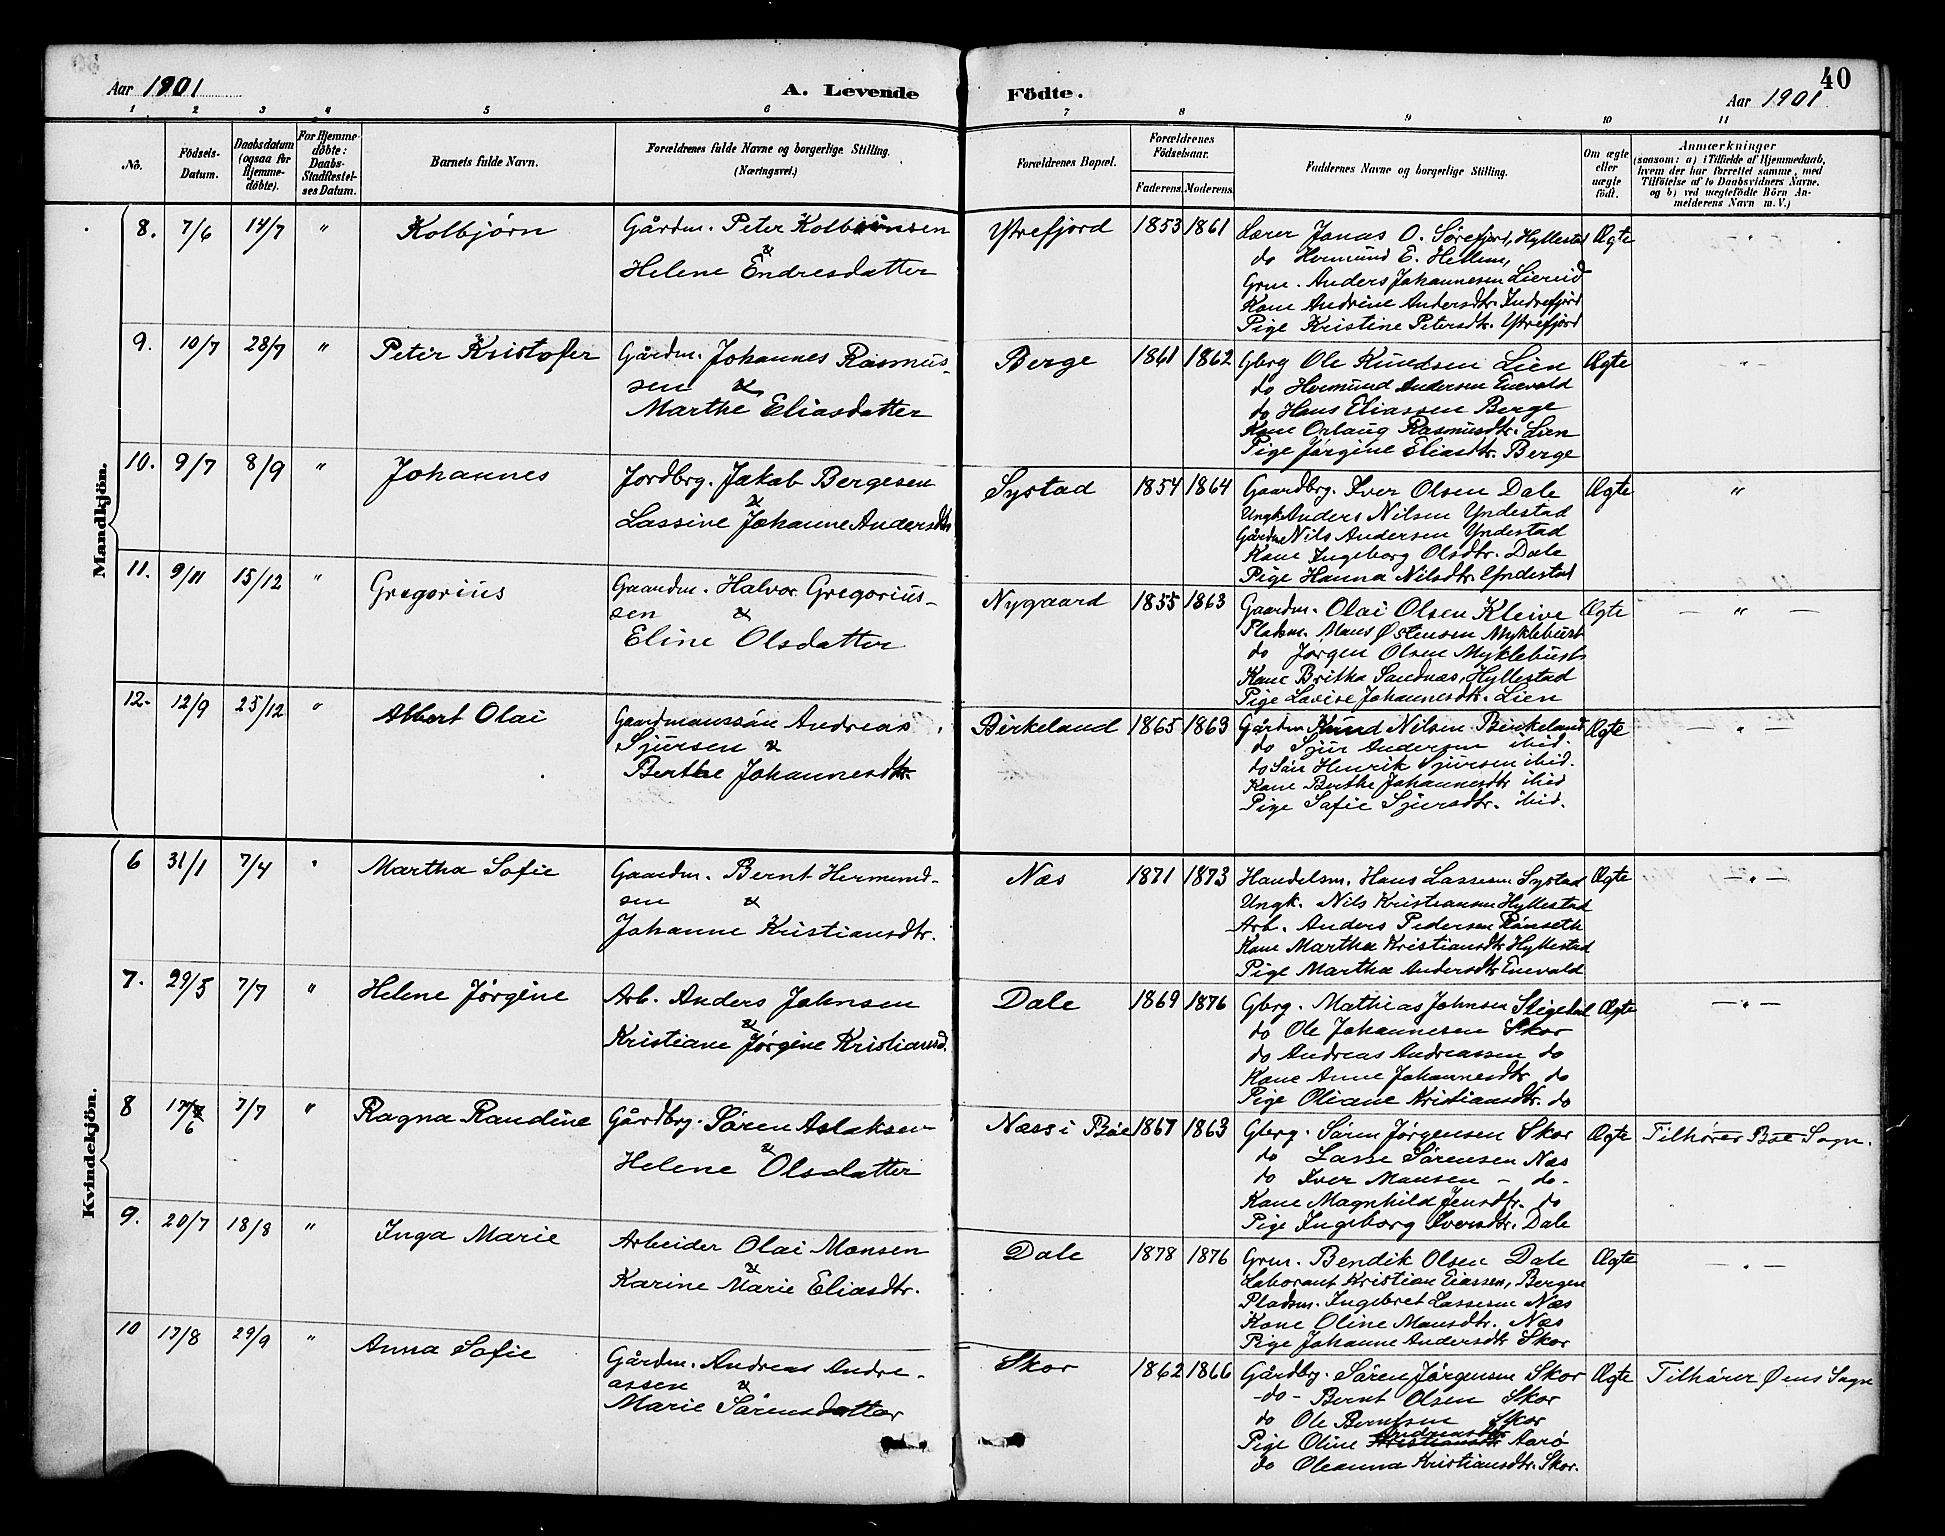 Aar 1901
A. Levende Födte.
Aar 1901
40
1 2 3 4 5 6 7 8 9 10 11
No.
Födsels-Datum.
Daabsdatum (ogsaa for Hjemme-döbte).
For Hjemme-döbte: Daabs-Stadfæstel-ses Datum.
Barnets fulde Navn.
Forældrenes fulde Navne og borgerlige Stilling.
(Næringsvei.)
Forældrenes Bopæl.
Forældrenes Födselsaar.
Faderens. Moderens.
Faddernes Navne og borgerlige Stilling.
Om ægte eller uægte födt.
Anmærkninger
(saasom: a) i Tilfælde af Hjemmedaab,
hvem der har forrettet samme, med
Tilföielse af to Daabsvidners Navne.
og b) ved uægtefödte Börn An-
melderens Navn m. V.)
Mandkjön.
8. 7/6 14/7 " Kolbjörn
Gårdm. Peter Kolbeinsen
&
Helene Endresdatter
Ytrefjord 1853 1861
Lærer Jonas O. Sörefjord, Hyllestad
do Hermund E. Hellem,
Grm. Anders Johannesen Liereid
Kone Andrine Andersdtr. Indrefjord
Pige Kristine Petersdtr. Ytrefjord
Ægte "
9. 10/7 28/7 " Peter Kristofer
Gårdm. Johannes Rasmus-
sen &
Marthe Eliasdatter
Berge 1861 1862
Gbrg Ole Knudsen Lien
do Hermund Andersen Enevald
do Hans Eliassen Berge
Kone Orlaug Rasmusdtr. Lien
Pige Jörgine Eliasdtr. Berge
Ægte - " -
10. 9/7 8/9 " Johannes
Jordbrg. Jakob Bergesen
&
Lassine Johanne Andersdtr
Systad 1854 1864
Gaardbrg. Iver Olsen Dale
Ungk Anders Nilsen Yndestad
Gårdm Nils Andersen Yndestad
Kone Ingeborg Olsdtr. Dale
Pige Hanna Nilsdtr. Yndestad
Ægte "
11. 9/11 15/12 " Gregorius
Gaardm. Halvor Gregorius-
sen &
Eline Olsdatter
Nygaard 1855 1863
Gaardm. Olai Olsen Kleive
Pladsm. Mons Østensen Myklebust
do Jörgen Olsen Myklebust
Kone Britha Sandnæs, Hyllestad
Pige Lovise Johannesdtr. Lien
Ægte — " —
12. 12/9 25/12 " Albert Olai
Gaardmanssön Andreas
Sjursen &
Berthe Johannesdtr.
Birkeland 1865 1869
Gårdm Knud Nilsen Birkeland
do Sjur Andersen ibid.
do Sön Henrik Sjursen ibid.
Kone Berthe Johannesdtr ibid
Pige Sofie Sjursdtr. ibid.
Ægte — " —
Kvindekjön.
6 31/1 7/4 " Martha Sofie
Gaardm. Bernt Hermund-
sen &
Johanne Kristiansdtr.
Næs 1871 1873
Handelsm. Hans Lassesen Systad
Ungk. Nils Kristiansen Hyllestad
Arb. Anders Pedersen Rönseth
Kone Martha Kristiansdtr Hyllestad
Pige Martha Andersdtr Enevald
Ægte — " —
7. 29/5 7/7 " Helene Jörgine
Arb. Anders Johnsen
&
Kristiane Jörgine Kristiansd.
Dale 1869 1876
Gbrg. Mathias Johnsen Stigedal
do Ole Johannesen Skor
do Andreas Andreassen do
Kone Anne Johannesdtr. do
Pige Oliane Kristiansdtr. do
Ægte — " —
8 17/6 7/7 " Ragna Randine
Gårdbrg. Sören Aslaksen
&
Helene Olsdatter
Næss i Böe 1867 1863
Gbrg. Sören Jörgensen Skor
do Lasse Sörensen Næs
do Iver Monsen — do-
Kone Magnhild Jensdtr. do
Pige Ingeborg Iversdtr. Dale
Ægte Tilhörer Bøe Sogn.
9. 20/7 18/8 " Inga Marie
Arbeider Olai Monsen
&
Karine Marie Eliasdtr.
Dale 1878 1876
Grm. Bendik Olsen Dale
Laborant Kristian Eiassen, Bergen
Pladsm. Ingebret Lassesen Næs
Kone Oline Monsdtr. Næs
Pige Johanne Andersdtr Skor
Ægte — " —
10 17/8 29/9 " Anna Sofie
Gårdm. Andreas Andre-
assen &
Marie Sörensdatter
Skor 1862 1866
Gårdbrg. Sören Jörgensen Skor
-do- Bernt Olsen Skor
do Ole Berntsen Skor
Pige Oline Andreasdtr Aarö
do Oleanna Kristiansdtr. Skor.
Ægte Tilhörer Øens Sogn